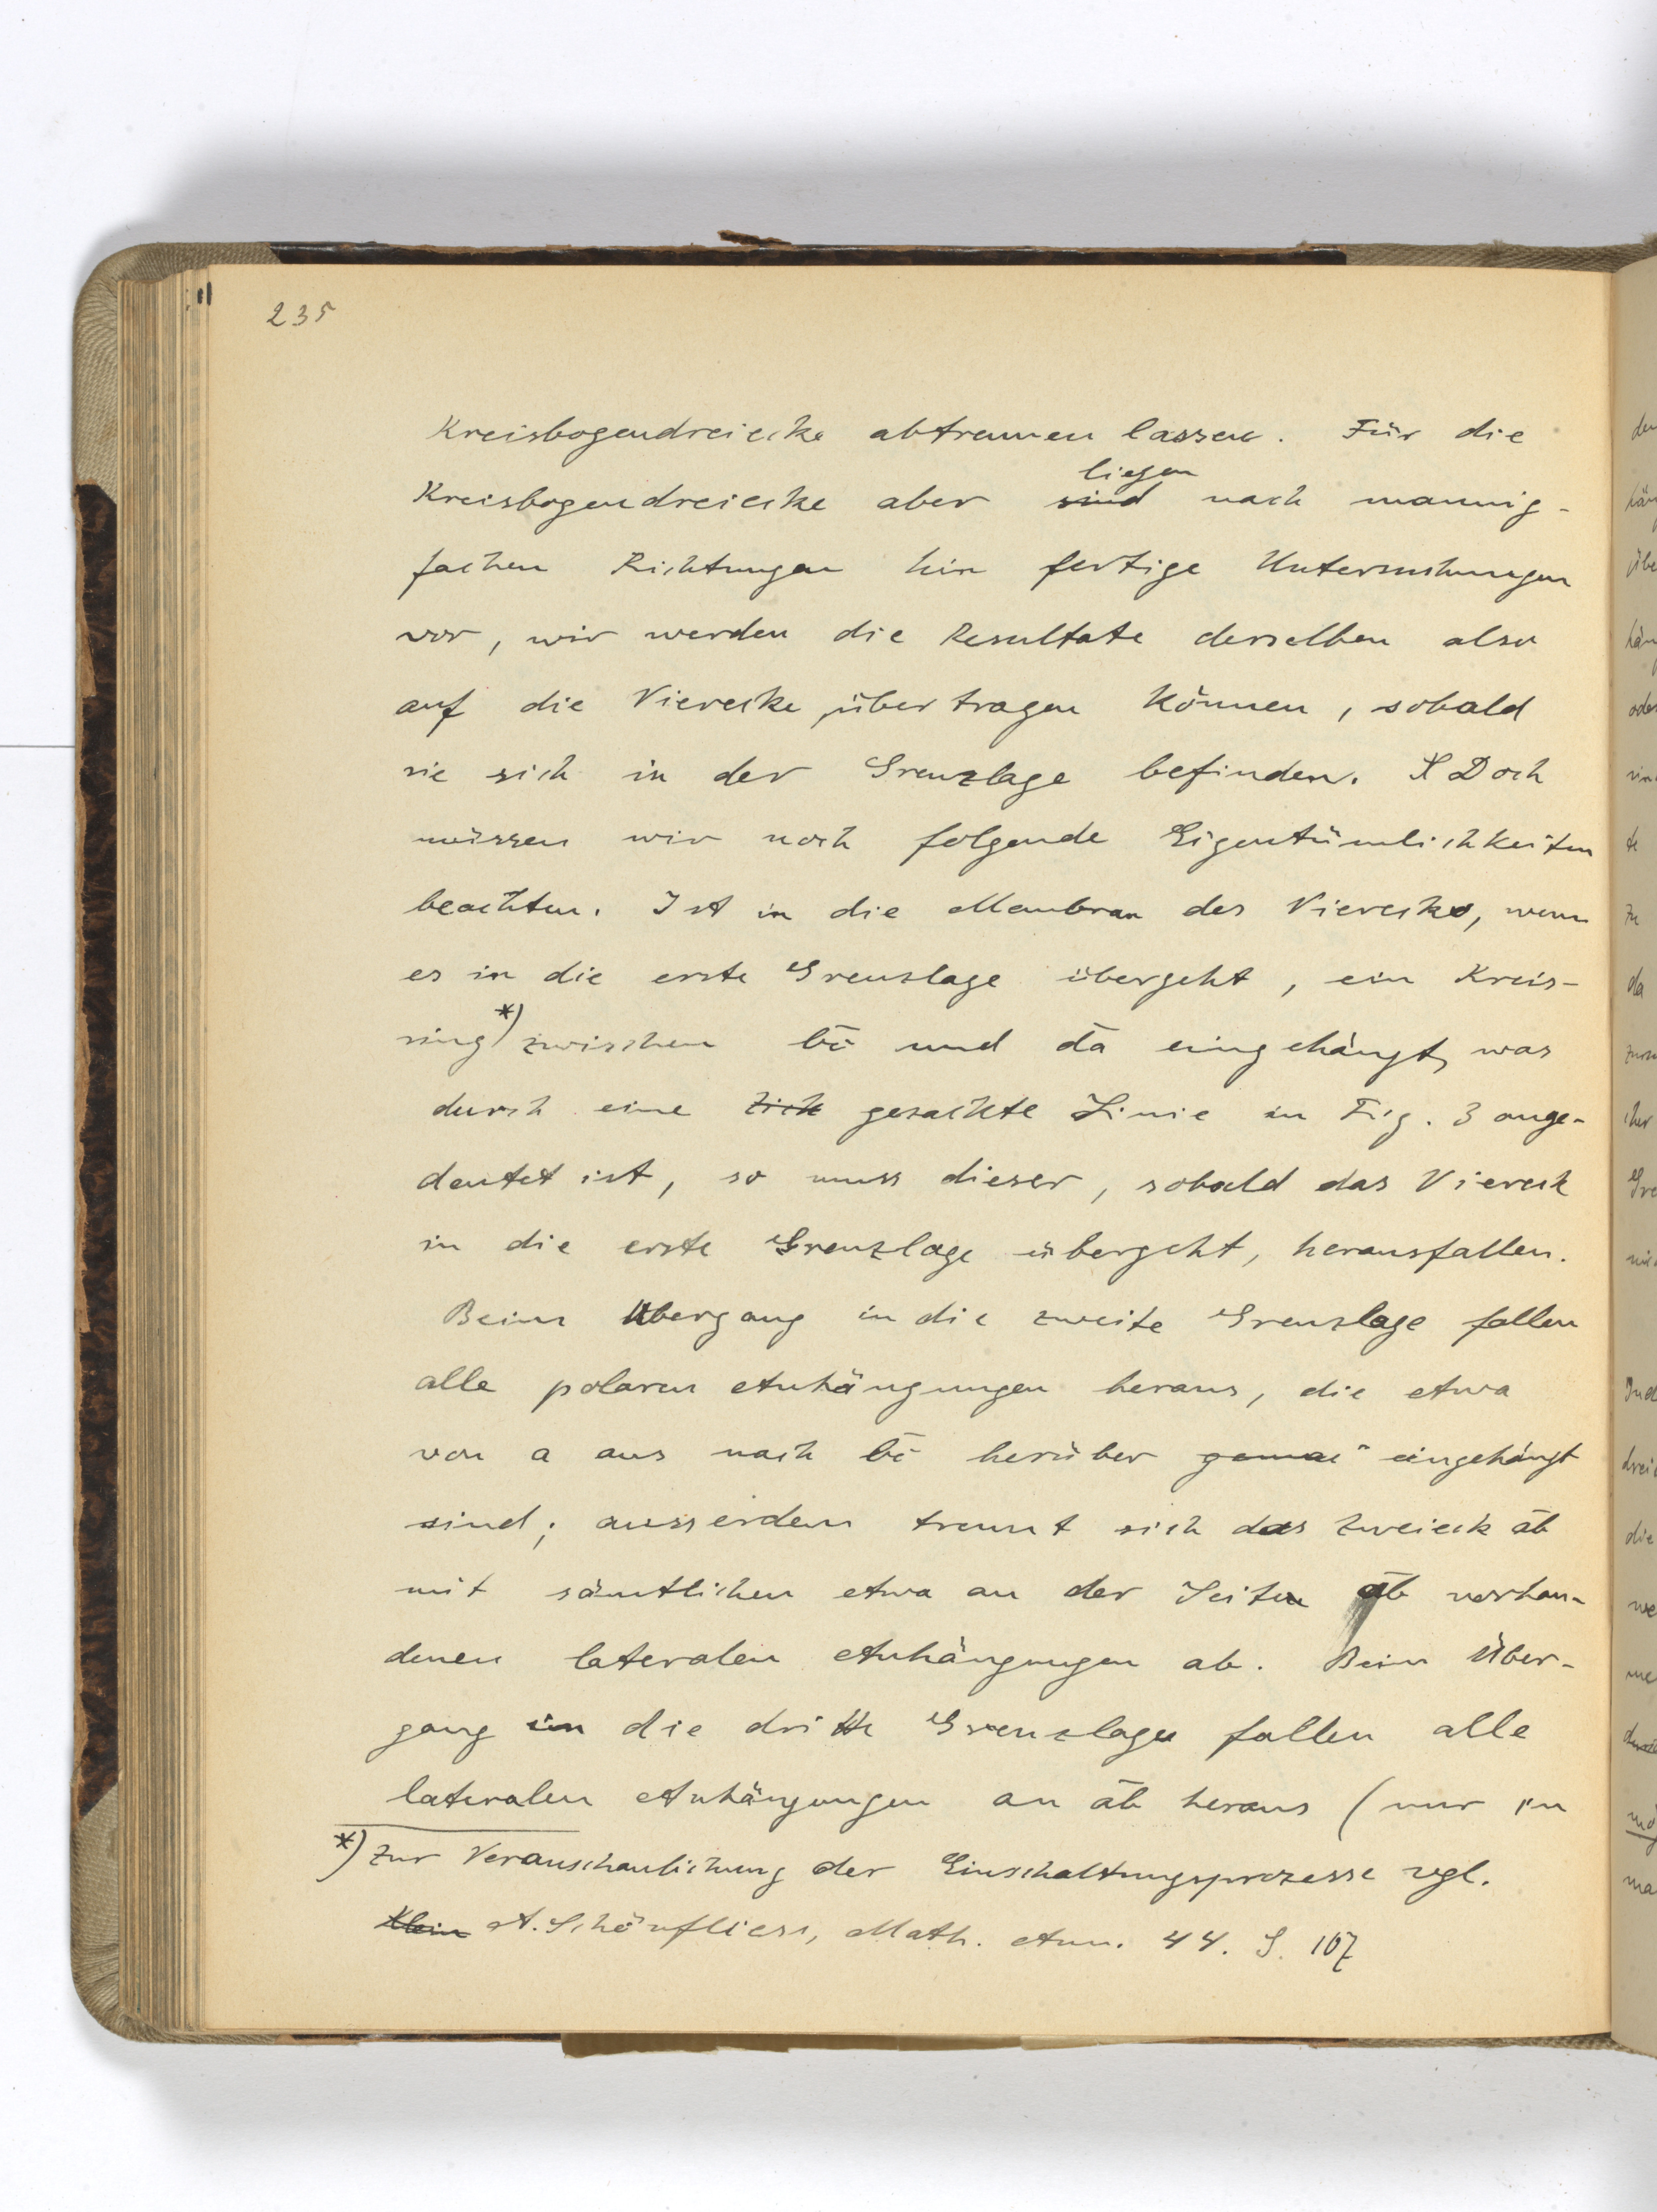 235
Kreisbogendreiecke abtrennen lassen. Für die
liegen
Kreisbogendreiecke aber sind nach mannig-
fachen Richtungen hin fertige Untersuchungen
vor, wir werden die Resultate derselben also
auf die Vierecke übertragen können, sobald
sie sich in der Grenzlage befinden. Doch
müssen wir noch folgende Eigentümlichkeiten
beachten. Ist in die Membran des Vierecks, wenn
es in die erste Grenzlage übergeht, ein Kreis-
ring*) zwischen b̅c̅ und d̅a̅ eingehängt, was
durch eine Zick gezackte Linie in Fig. 3 ange-
deutet ist, so muss dieser, sobald das Viereck
in die erste Grenzlage übergeht, herausfallen.
Beim Übergang in die zweite Grenzlage fallen
alle polaren Anhängungen heraus, die etwa
von a aus nach b̅c̅ herüber eingehängt
sind; ausserdem trennt sich das Zweieck a̅b̅
mit sämtlichen etwa an der Seite a̅b̅ vorhan-
denen lateralen Anhängungen ab. Beim Über-
gang in die dritte Grenzlage fallen alle
lateralen Anhängungen an a̅b̅ heraus (nur in
*) Zur Veranschaulichung der Einschaltungsprozesse vgl.
Klein A. Schönfliess, Math. Ann. 44. S. 107